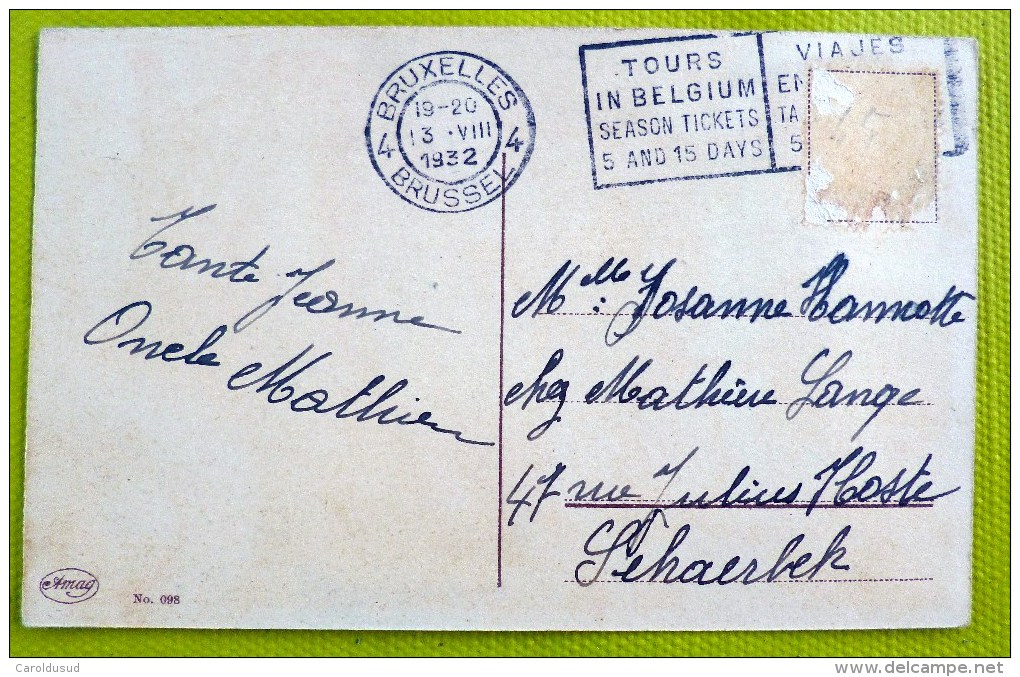 BRUXELLES
19-20
13 · VIII
1932
4 4
BRUSSEL
TOURS
IN BELGIUM
SEASON TICKETS
5 AND 15 DAYS
VIAJES
EN
TA
5
15
Tante Jeanne
Oncle Mathieu
Mlle: Josanne Hannotte
chez Mathieu Lange
47 rue Julius Hoste
Schaerbek
Amag
No. 098
Caroldusud
www.delcampe.net